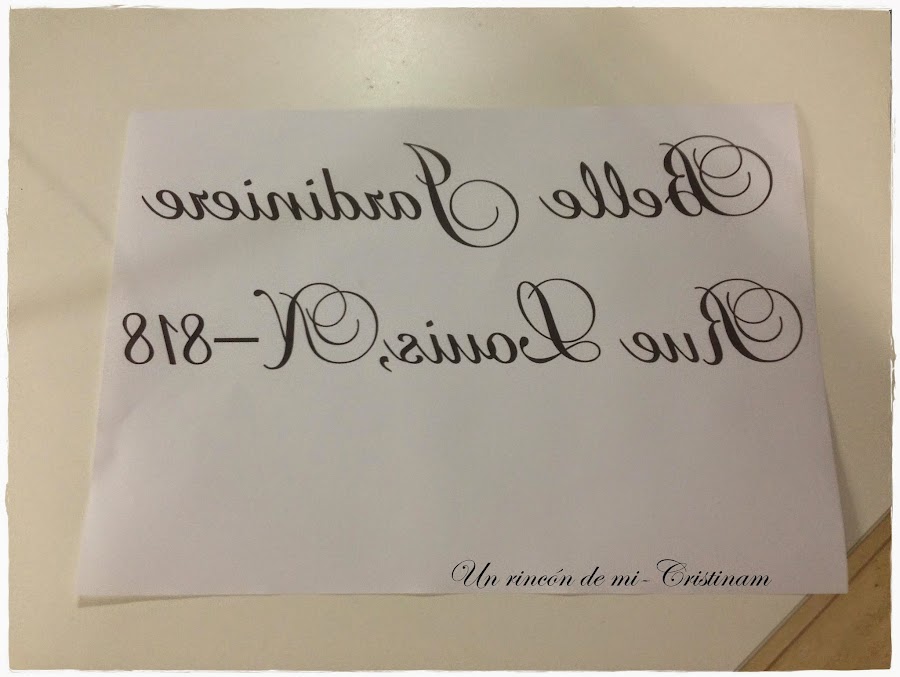 Belle Jardiniere
Rue Louis, N-818
Un rincón de mi-Cristinam